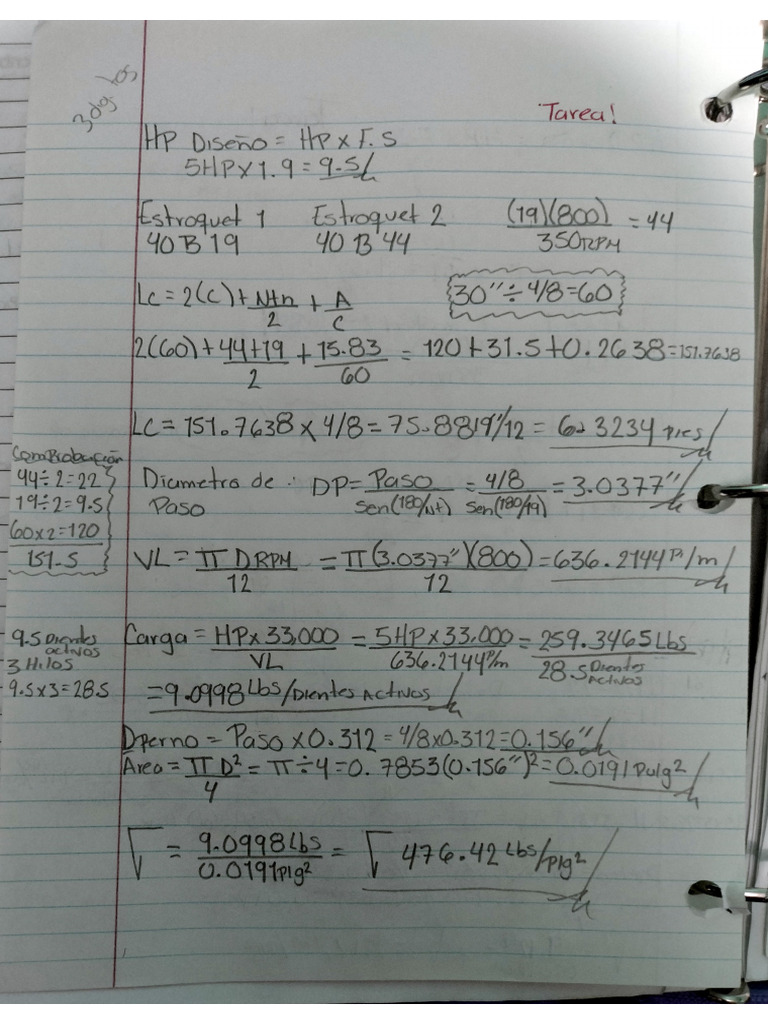 3 dg. los
Tarea!
HP Diseño = HP x F.S
5HP x 1.9 = 9.5
Estroquet 1 Estroquet 2 (19)(800)/350RPM = 44
40 B 19 40 B 44
Lc = 2(C) + N+n/2 + A/C 30" ÷ 4/8 = 60
2(60) + 44+19/2 + 15.83/60 = 120 + 31.5 + 0.2638 = 151.7638
Lc = 151.7638 x 4/8 = 75.8819"/12 = 6.3234 pies
Comprobación
44÷2=22
19÷2=9.5
60x2=120
151.5
Diametro de : DP = Paso/Sen(180/Nt) = 4/8/Sen(180/19) = 3.0377"
Paso
VL = π D RPM/12 = π(3.0377")(800)/12 = 636.2144 Pi/m
9.5 Dientes activos
3 Hilos
9.5x3=28.5
Carga = HP x 33,000/VL = 5HP x 33,000/636.2144 P/m = 259.3465 Lbs/28.5 Dientes Activos
= 9.0998 Lbs/Dientes Activos
Dperno = Paso x 0.312 = 4/8 x 0.312 = 0.156"
Area = π D²/4 = π÷4 = 0.7853(0.156")² = 0.0191 Pulg²
√ = 9.0998 Lbs/0.0191 Plg² = √ 476.42 Lbs/plg²